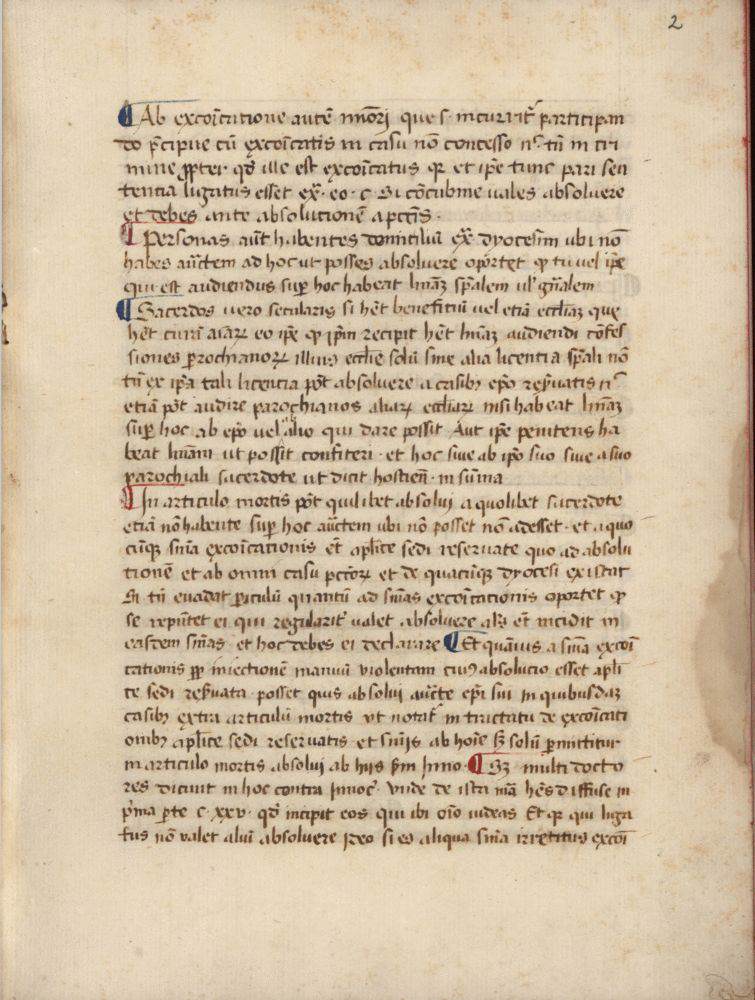 2
¶ Ab excoīcatione autē minori que s. incurritᷣ participan
do p̄cipue cū excoīcatis in casu nō concesso n͛ tn̄ in cri
mine ꝓpter qd̄ ille est excoīcatus qꝛ et ip̄e tunc pari sen
tentia ligatus esset ex̄. eo. c. Si cōcubine uales absoluere
et debes ante absolutionē a pctīs.
¶ Personas aūt habentes domiciliū ex̄ dyocesim ubi nō
habes auctem ad hoc ut posses absoluere oportet ꝙ tu uel ip̄e
qui est audiendus suꝑ hoc habeat lnīaꝫ sp̄alem ul̓ gn̄alem
¶ Sacerdos uero secularis si hēt benefitiū uel etiā ecclīaꝫ que
hēt curā aīaꝝ eo ip̄e ꝙ ip̄m recipit hēt lnīaꝫ audiendi cōfes
siones ꝑrochianoꝝ illius ecclīe solū sine alia licentia sp̄ali nō
tn̄ ex ip̄a tali licentia pōt absoluere a casibꝫ ep̄o res̓uatis n͛
etiā pōt audire parochianos aliaꝝ ecclīaꝝ nisi habeat lnīaꝫ
suꝑ hoc ab ep̄o uel alio qui dare possit Aut ip̄e penitens ha
beat lnīam ut possit confiteri. et hoc siue ab ip̄o suo siue a suo
parochiali sacerdote ut dicit hostien̄. in sūma
¶ In articulo mortis pōt quilibet absolui a quolibet sacerdote
etiā nō habente suꝑ hoc auctem ubi nō posset nō adesset. et a quo
cūqꝫ snīa excoīcationis et̄ aplīce sedi reseruate quo ad absolu
tionē et ab omni casu pctōꝝ et de quacūqꝫ dyocesi existat
Si tn̄ euadat ꝑiculū quantū ad snīas excoīcationis oportet ꝙ
se repn̄tet ei qui regularitᷣ ualet absoluere alꝫ et̄ incidit in
easdem snīas et hoc debes ei declarare ¶ Et quāuis a snīa excoī
cationis ꝓꝑ iniectionē manuū uiolentam cuiꝰ absolucio esset apli
ce sedi res̓uata posset quis absolui aucte ep̄i sui in quibusdaꝫ
casibꝫ extra articulū mortis ut notatᷣ in tractatu de excoīcati
onibꝫ aplīce sedi reseruatis et snīis ab hoīe sꝫ solū ꝑmittitur
in articulo mortis absolui ab hiis scd̄m Inno. ¶ Sꝫ multi docto
res dicunt in hoc contra Innoc̄. Vnde de ista mā hēs diffuse in
p̄ma ꝑte c. xxv. qd̄ incipit eos qui ibi oīo uideas Et qꝛ qui liga
tus nō ualet aliū absoluere ideo si es aliqua snīa irretitus excoī